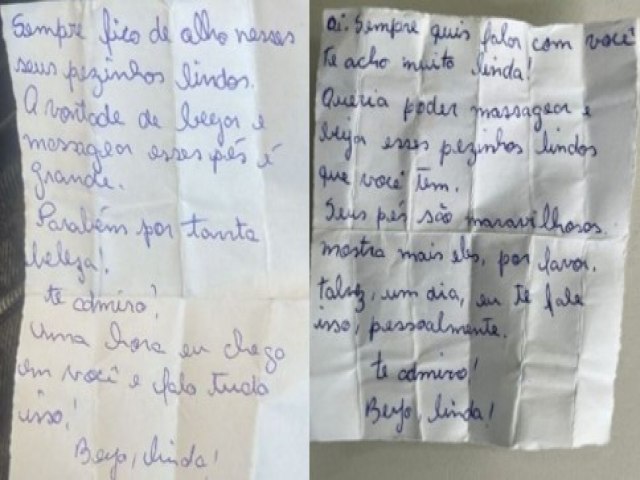 Sempre fico de alho nesses
seus pezinhos lindos.
A vontade de beijar e
massagear esses pés é
grande.
Parabém por tanta
beleza!
te admiro!
uma hora eu chego
em você e falo tudo
isso!
Beijo, linda!
oi. Sempre quis falar com você
te acho muito linda!
Queria poder massagear e
beijar esses pezinhos lindos
que você tem.
Seus pés são maravilhosos.
mostra mais eles, por favor.
talvez, um dia, eu te fale
isso, pessoalmente.
te admiro!
Beijo, linda!